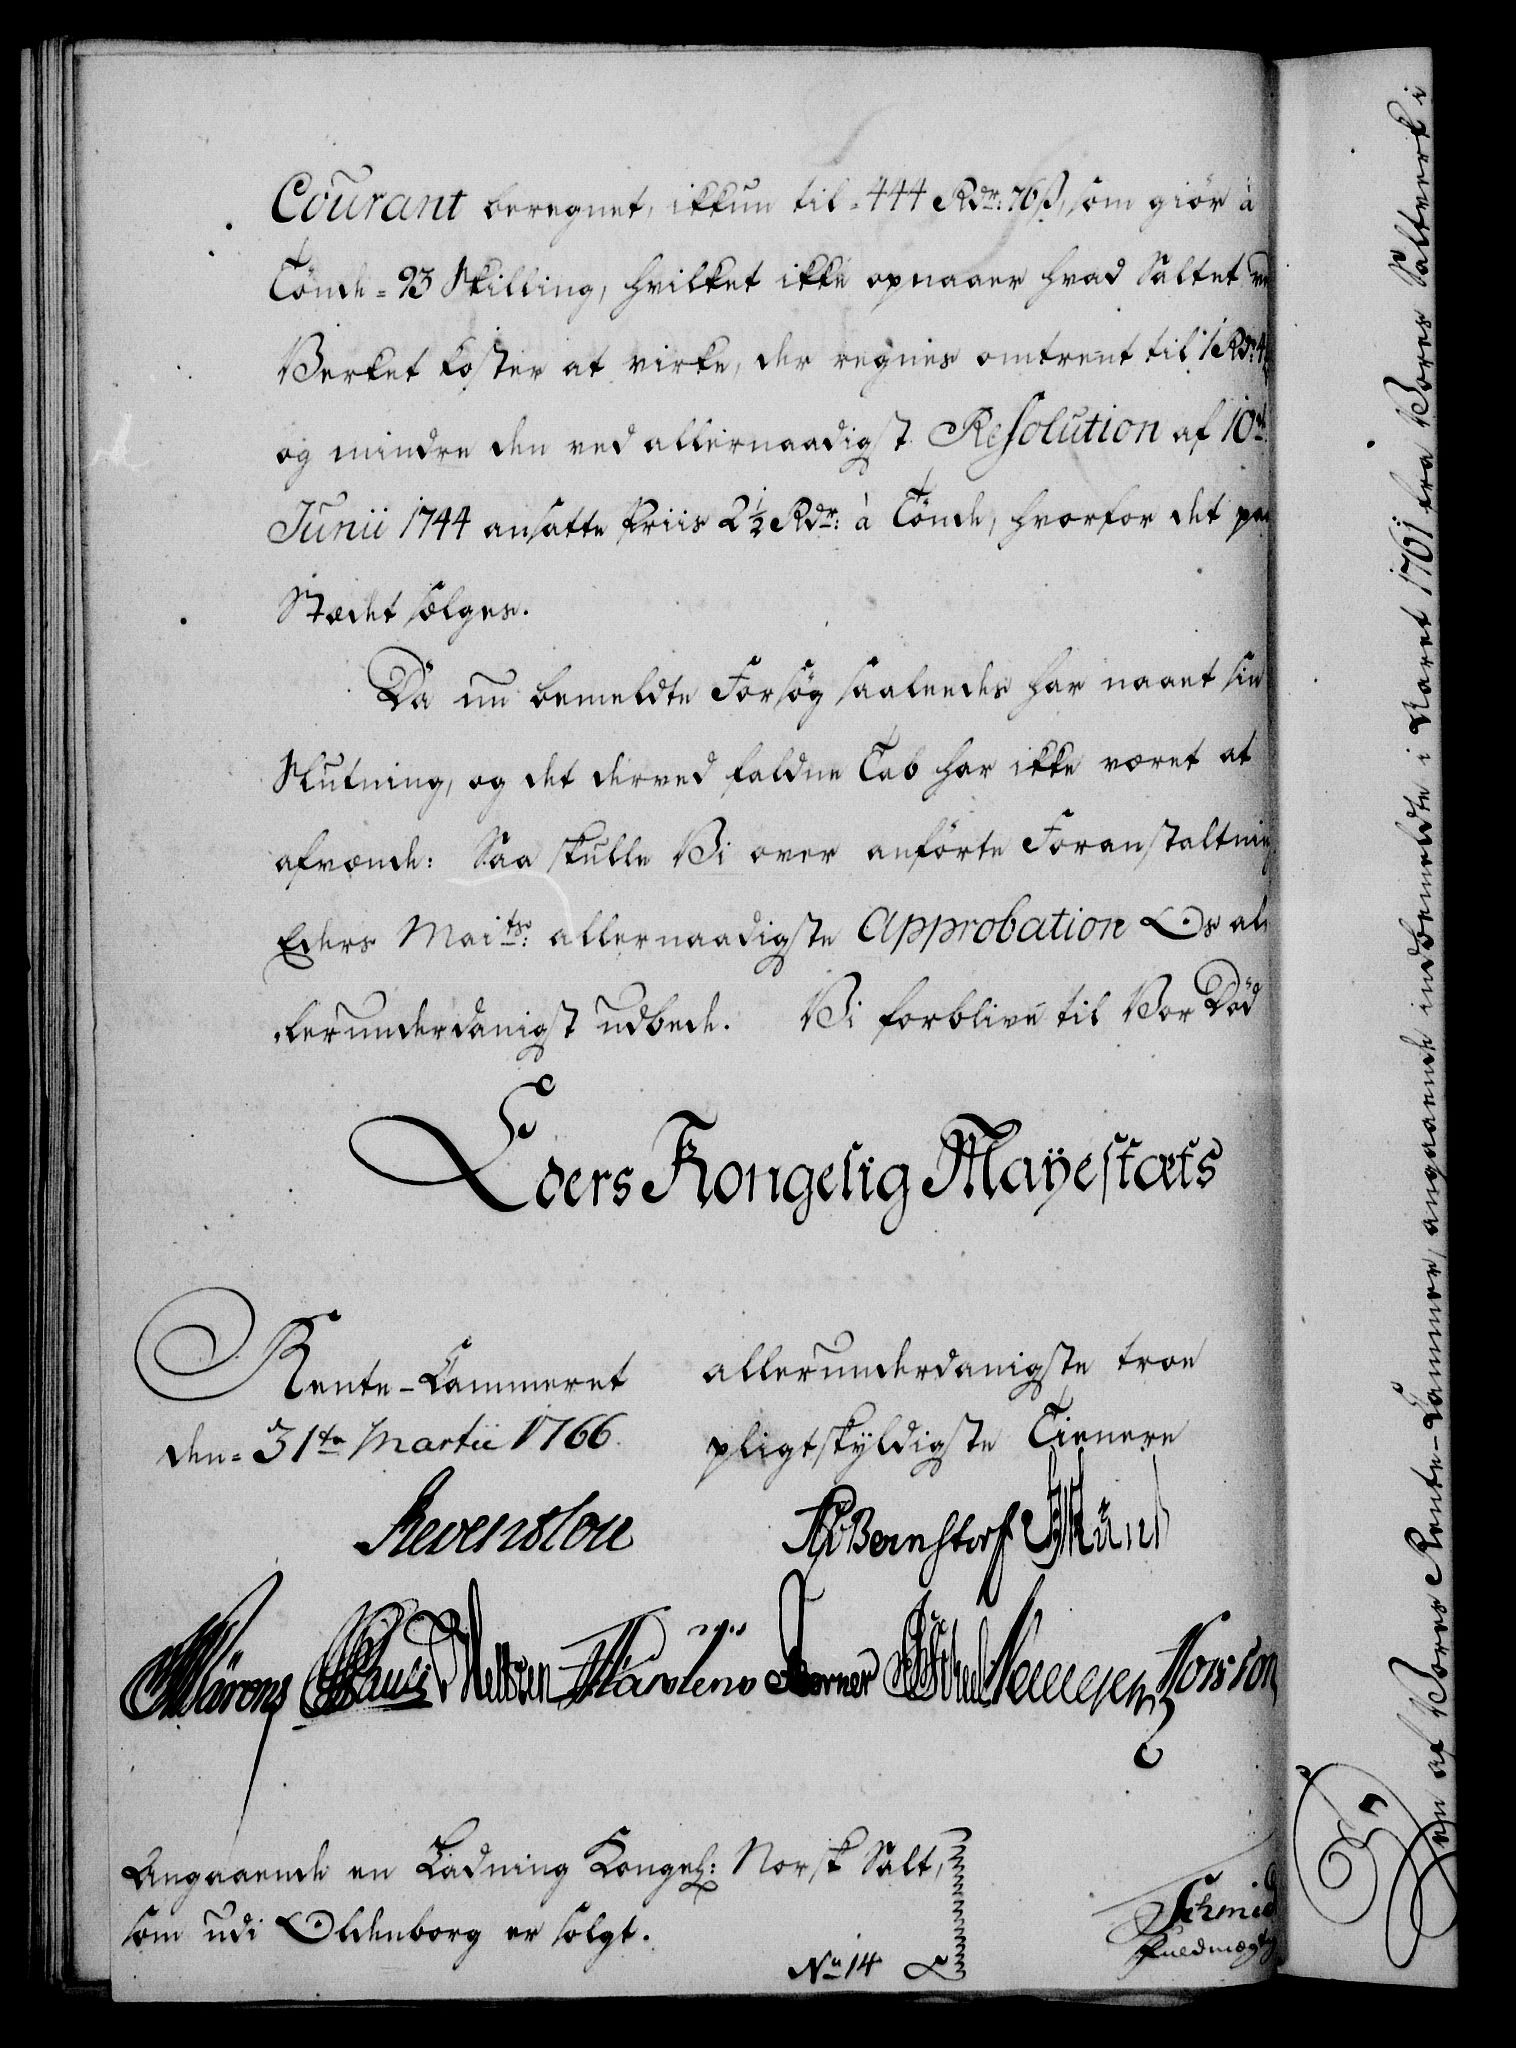 Courant beregnet, ikkun til 444 Rdr: 76 ß, som giör à
Tönde = 93 Skilling, hvilket ikke opnaaer hvad Saltet
Verket koster at virke, der regnes omtrent til 1 Rdr: 4
og mindre den ved allernaadigst Resolution af 10de
Junii 1744 ansatte Priis 2½ Rdr: à Tönde, hvorfor det paa
Stædet sælges.
Da nu bemeldte Forsög saaledes har naaet sin
Slutning, og det derved faldne Tab har ikke været at
afvænde: Saa skulle Vi over anförte Foranstaltning
Eders Maits: allernaadigste Approbation Os al-
lerunderdanigst udbede. Vi forblive til Vor Död
Eders Kongelig Mayestæts
Rente-Cammeret
den = 31te Martii 1766.
allerunderdanigste troe
pligtskyldigste Tienere
Reventlou
Bernstorf
Angaaende en Ladning Kongel: Norsk Salt,
som udi Oldenborg er solgt.
No 14
Schmid
Fuldmægtig
Den af Vores Rente-Cammer, angaaende indbemeldte i Aaret 1761 fra Vores Saltverk i